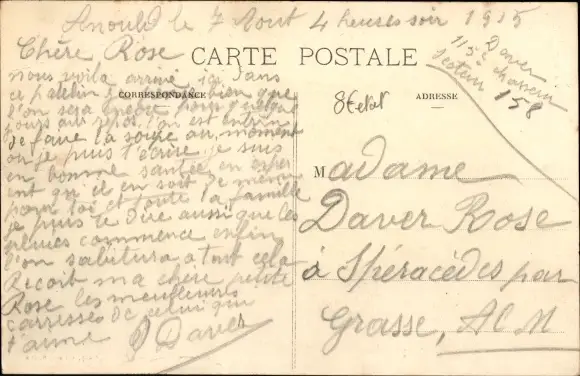 Anould le 7 Aout 4 heures soir 1915
Daver
113e chasseur
secteur 158
Chère, Rose
CARTE POSTALE
CORRESPONDANCE
ADRESSE
nous voila arrivé ici dans
ce patelin
l'on sera
jours au repos l'on est entrin
de faire la soupe au moment
ou je puis t'écrire je suis
en bonne santée en esper
ent qu'il en soit de même
pour toi et toute la famille
je puis te dire aussi que les
pluies commence enfin
l'on sabitura a tout cela
Recoit ma chère petite
Rose les meulleures
carresses de celui qui
t'aime J Daver
Madame
Daver Rose
à Spéracèdes par
Grasse, A M